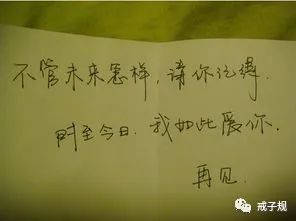 不管未来怎样，请你记得.
时至今日.我如此爱你.
再见.
戒子规